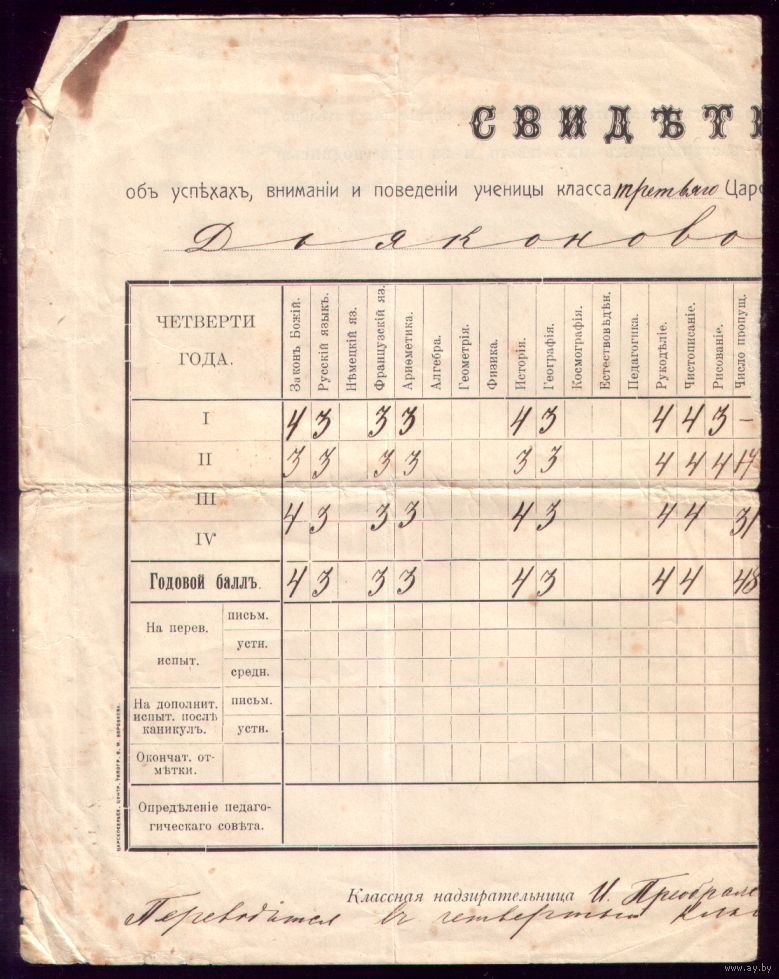 СВИДѢТ
объ успѣхахъ, вниманіи и поведеніи ученицы класса третьяго Царс
Дьяконово
ЧЕТВЕРТИ ГОДА. Законъ Божій. Русскій языкъ. Нѣмецкій яз. Французскій яз. Ариѳметика. Алгебра. Геометрія. Физика. Исторія. Географія. Космографія. Естествовѣдѣн. Педагогика. Рукодѣліе. Чистописаніе. Рисованіе. Число пропущ.
I 4 3 3 3 4 3 4 4 3 –
II 3 3 3 3 3 3 4 4 4 17
III
IV 4 3 3 3 4 3 4 4 31
Годовой баллъ. 4 3 3 3 4 3 4 4 48
На перев. испыт. письм.
устн.
средн.
На дополнит. испыт. послѣ каникулъ. письм.
устн.
Окончат. от-
мѣтки.
Опредѣленіе педаго-
гическаго совѣта.
ЦАРСКОСЕЛЬСК. ЦЕНТР. ТИПОГР.
Классная надзирательница И. Преображе
Переводится въ четвертый клас
www.ay.by